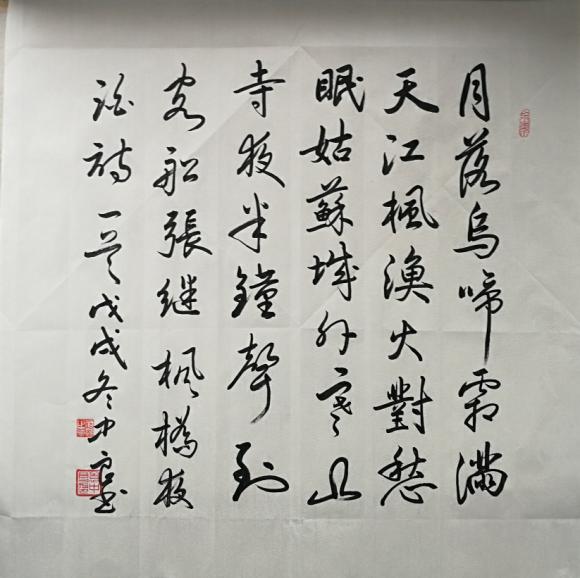 月落烏啼霜滿
天江楓漁火對愁
眠姑蘇城外寒山
寺夜半鐘聲到
客船張継楓橋夜
泊詩一首戊戌冬中